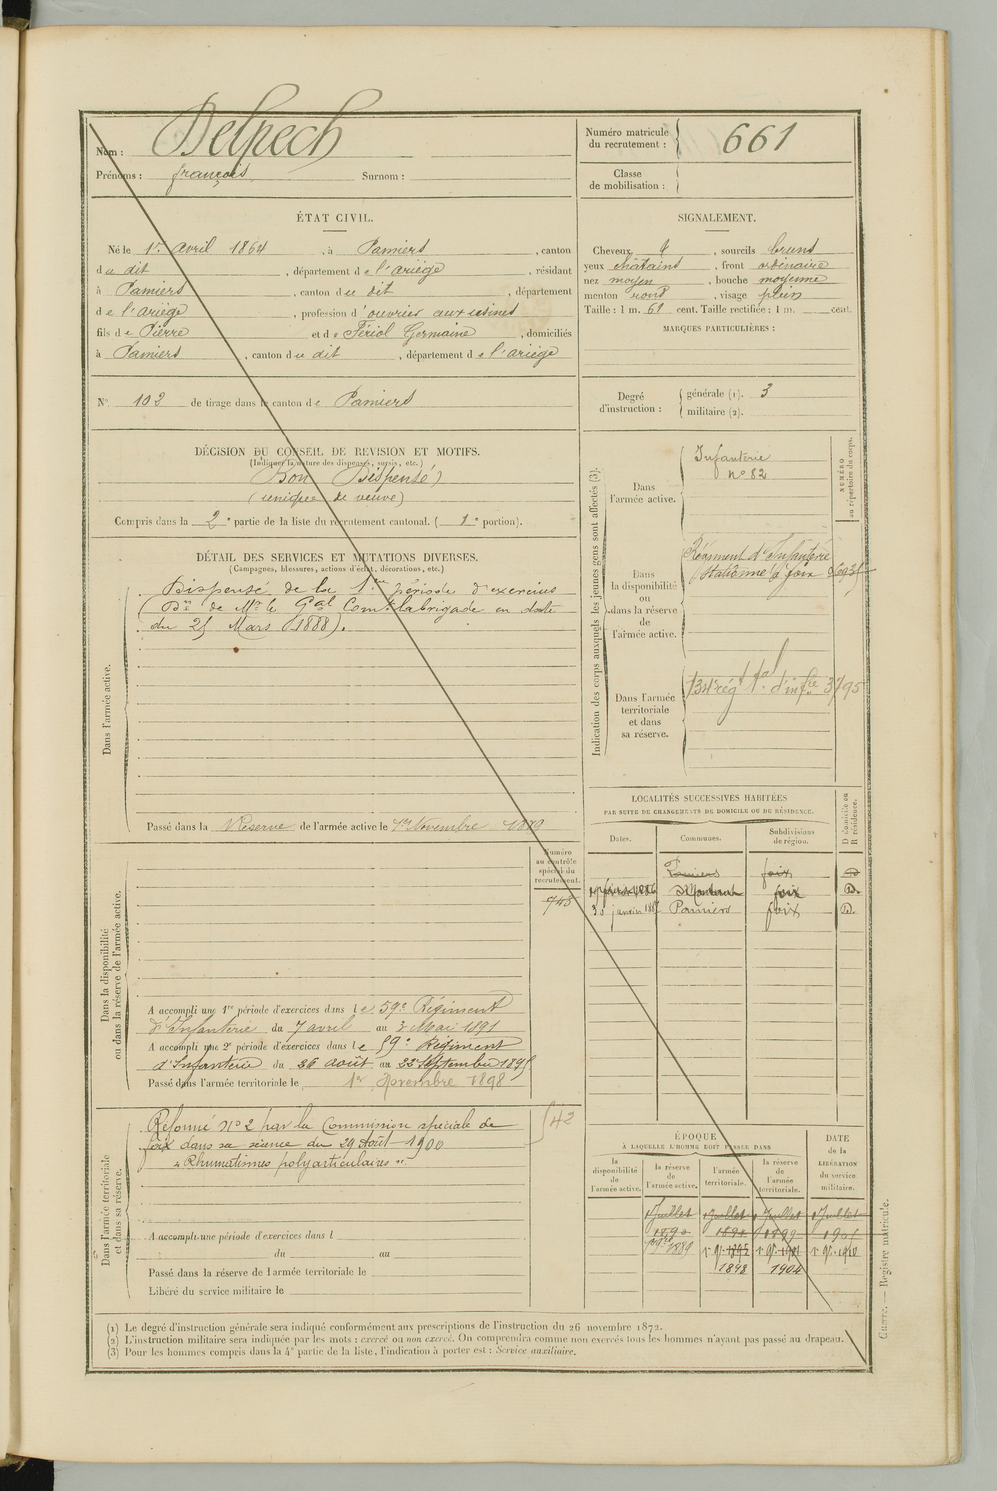 Nom : Delpech
Prénoms : françois Surnom :
Numéro matricule du recrutement : 661
Classe de mobilisation :
ÉTAT CIVIL.
Né le 1er Avril 1864, à Pamiers, canton
du dit, département de l'ariège, résidant
à Pamiers, canton du dit, département
de l'ariège, profession d'ouvrier aux usines
fils de Pierre et de Fériol Germaine, domiciliés
à Pamiers, canton du dit, département de l'ariège
N° 102 de tirage dans le canton de Pamiers
SIGNALEMENT.
Cheveux, sourcils bruns
yeux chatains, front ordinaire
nez moyen, bouche moyenne
menton rond, visage plein
Taille : 1 m. 61 cent. Taille rectifiée : 1 m. cent.
MARQUES PARTICULIÈRES :
Degré d'instruction : générale (1). 3
militaire (2).
DÉCISION DU CONSEIL DE REVISION ET MOTIFS.
(Indiquer la nature des dispenses, sursis, etc.)
Bon Dispensé
(unique de veuve)
Compris dans la 2e partie de la liste du recrutement cantonal. (1e portion).
DÉTAIL DES SERVICES ET MUTATIONS DIVERSES.
(Campagnes, blessures, actions d'éclat, décorations, etc.)
Dans l'armée active.
Dispensé de la 1ère période d'exercices
(Don de Mr le Gal Comt la brigade en date
du 25 Mars 1888).
Passé dans la Réserve de l'armée active le 1er Novembre
Indication des corps auxquels les jeunes gens sont affectés (3).
NUMÉRO au répertoire du corps.
Dans l'armée active.
Infanterie
n° 82
Dans la disponibilité ou dans la réserve de l'armée active.
Régiment d'Infanterie
Stationné à foix
Dans l'armée territoriale et dans sa réserve.
régt tal d'infie
LOCALITÉS SUCCESSIVES HABITÉES
PAR SUITE DE CHANGEMENTS DE DOMICILE OU DE RÉSIDENCE.
Dates. Communes. Subdivisions de région. D domicile ou R résidence.
Pamiers foix D
foix D.
30 janvier Pamiers foix D.
Numéro au contrôle spécial du recrutement.
745
Dans la disponibilité ou dans la réserve de l'armée active.
A accompli une 1re période d'exercices dans le 59e Régiment
d'Infanterie du 7 avril au 3 Mai 1891
A accompli une 2e période d'exercices dans le 59e Régiment
d'Infanterie du 26 août au 22 Septembre 1895
Passé dans l'armée territoriale le 1er Novembre 1898
Dans l'armée territoriale et dans sa réserve.
Réformé N° 2 par la Commission spéciale de
foix dans sa séance du 29 Août 1900
« Rhumatismes polyarticulaires ».
A accompli une période d'exercices dans l
du au
Passé dans la réserve de l'armée territoriale le
Libéré du service militaire le
ÉPOQUE
À LAQUELLE L'HOMME DOIT PASSER DANS
la disponibilité de l'armée active. la réserve de l'armée active. l'armée territoriale. la réserve de l'armée territoriale. DATE DE LA LIBÉRATION du service militaire.
1 Juillet 1 Juillet 1 Juillet 1 Juillet
1890 1899
1889
1898 1904
(1) Le degré d'instruction générale sera indiqué conformément aux prescriptions de l'instruction du 26 novembre 1872.
(2) L'instruction militaire sera indiquée par les mots : exercé ou non exercé. On comprendra comme non exercés tous les hommes n'ayant pas passé au drapeau.
(3) Pour les hommes compris dans la 4e partie de la liste, l'indication à porter est : Service auxiliaire.
Guerre. — Registre matricule.